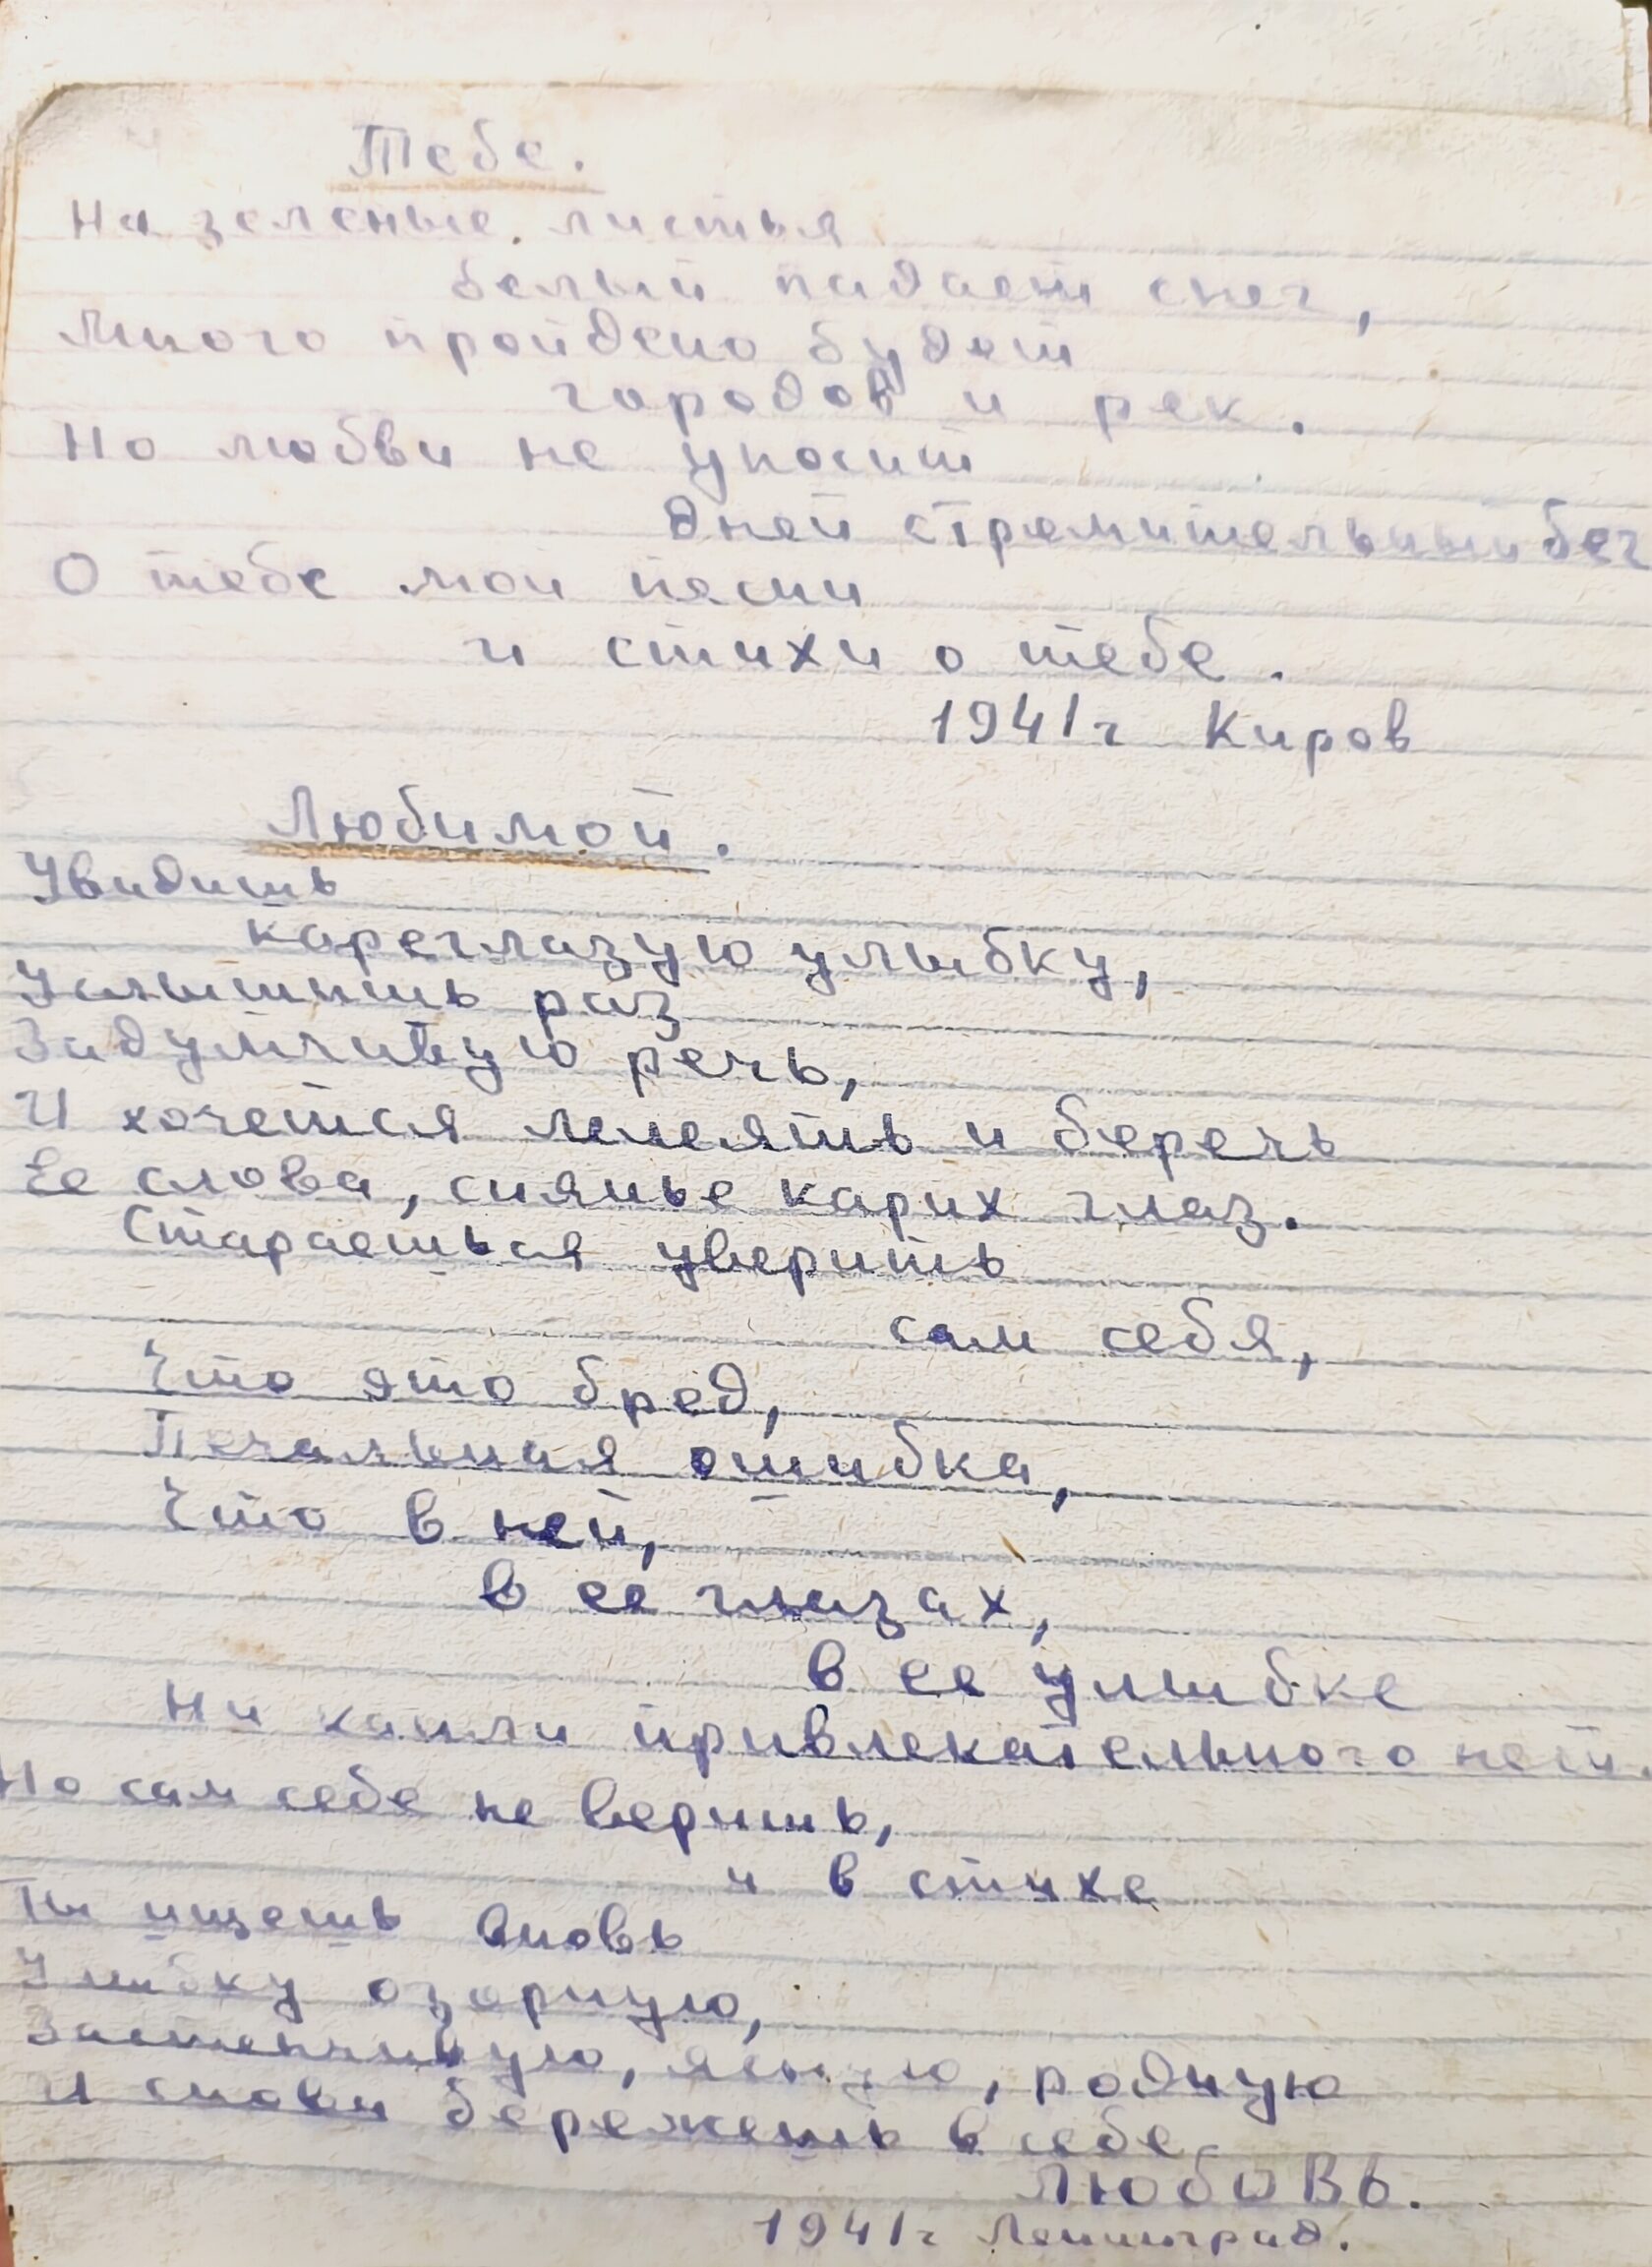 Тебе.
На зеленые листья
белый падает снег,
Много пройдено будет
городов и рек.
Но любви не уносит
дней стремительный бег
О тебе мои песни
и стихи о тебе.
1941г Киров
Любимой.
Увидишь
кареглазую улыбку,
Услышишь раз
Задумчивую речь,
И хочется лелеять и беречь
Ее слова, сиянье карих глаз.
Стараешься уверить
сам себя,
Что это бред,
Печальная ошибка,
Что в ней,
в ее глазах,
в ее улыбке
Ни капли привлекательного нет.
Но сам себе не веришь,
и в стихе
Ты ищешь вновь
Улыбку озорную,
Застенчивую, ясную, родную
И снова бережешь в себе
ЛЮБОВЬ.
1941г Ленинград.